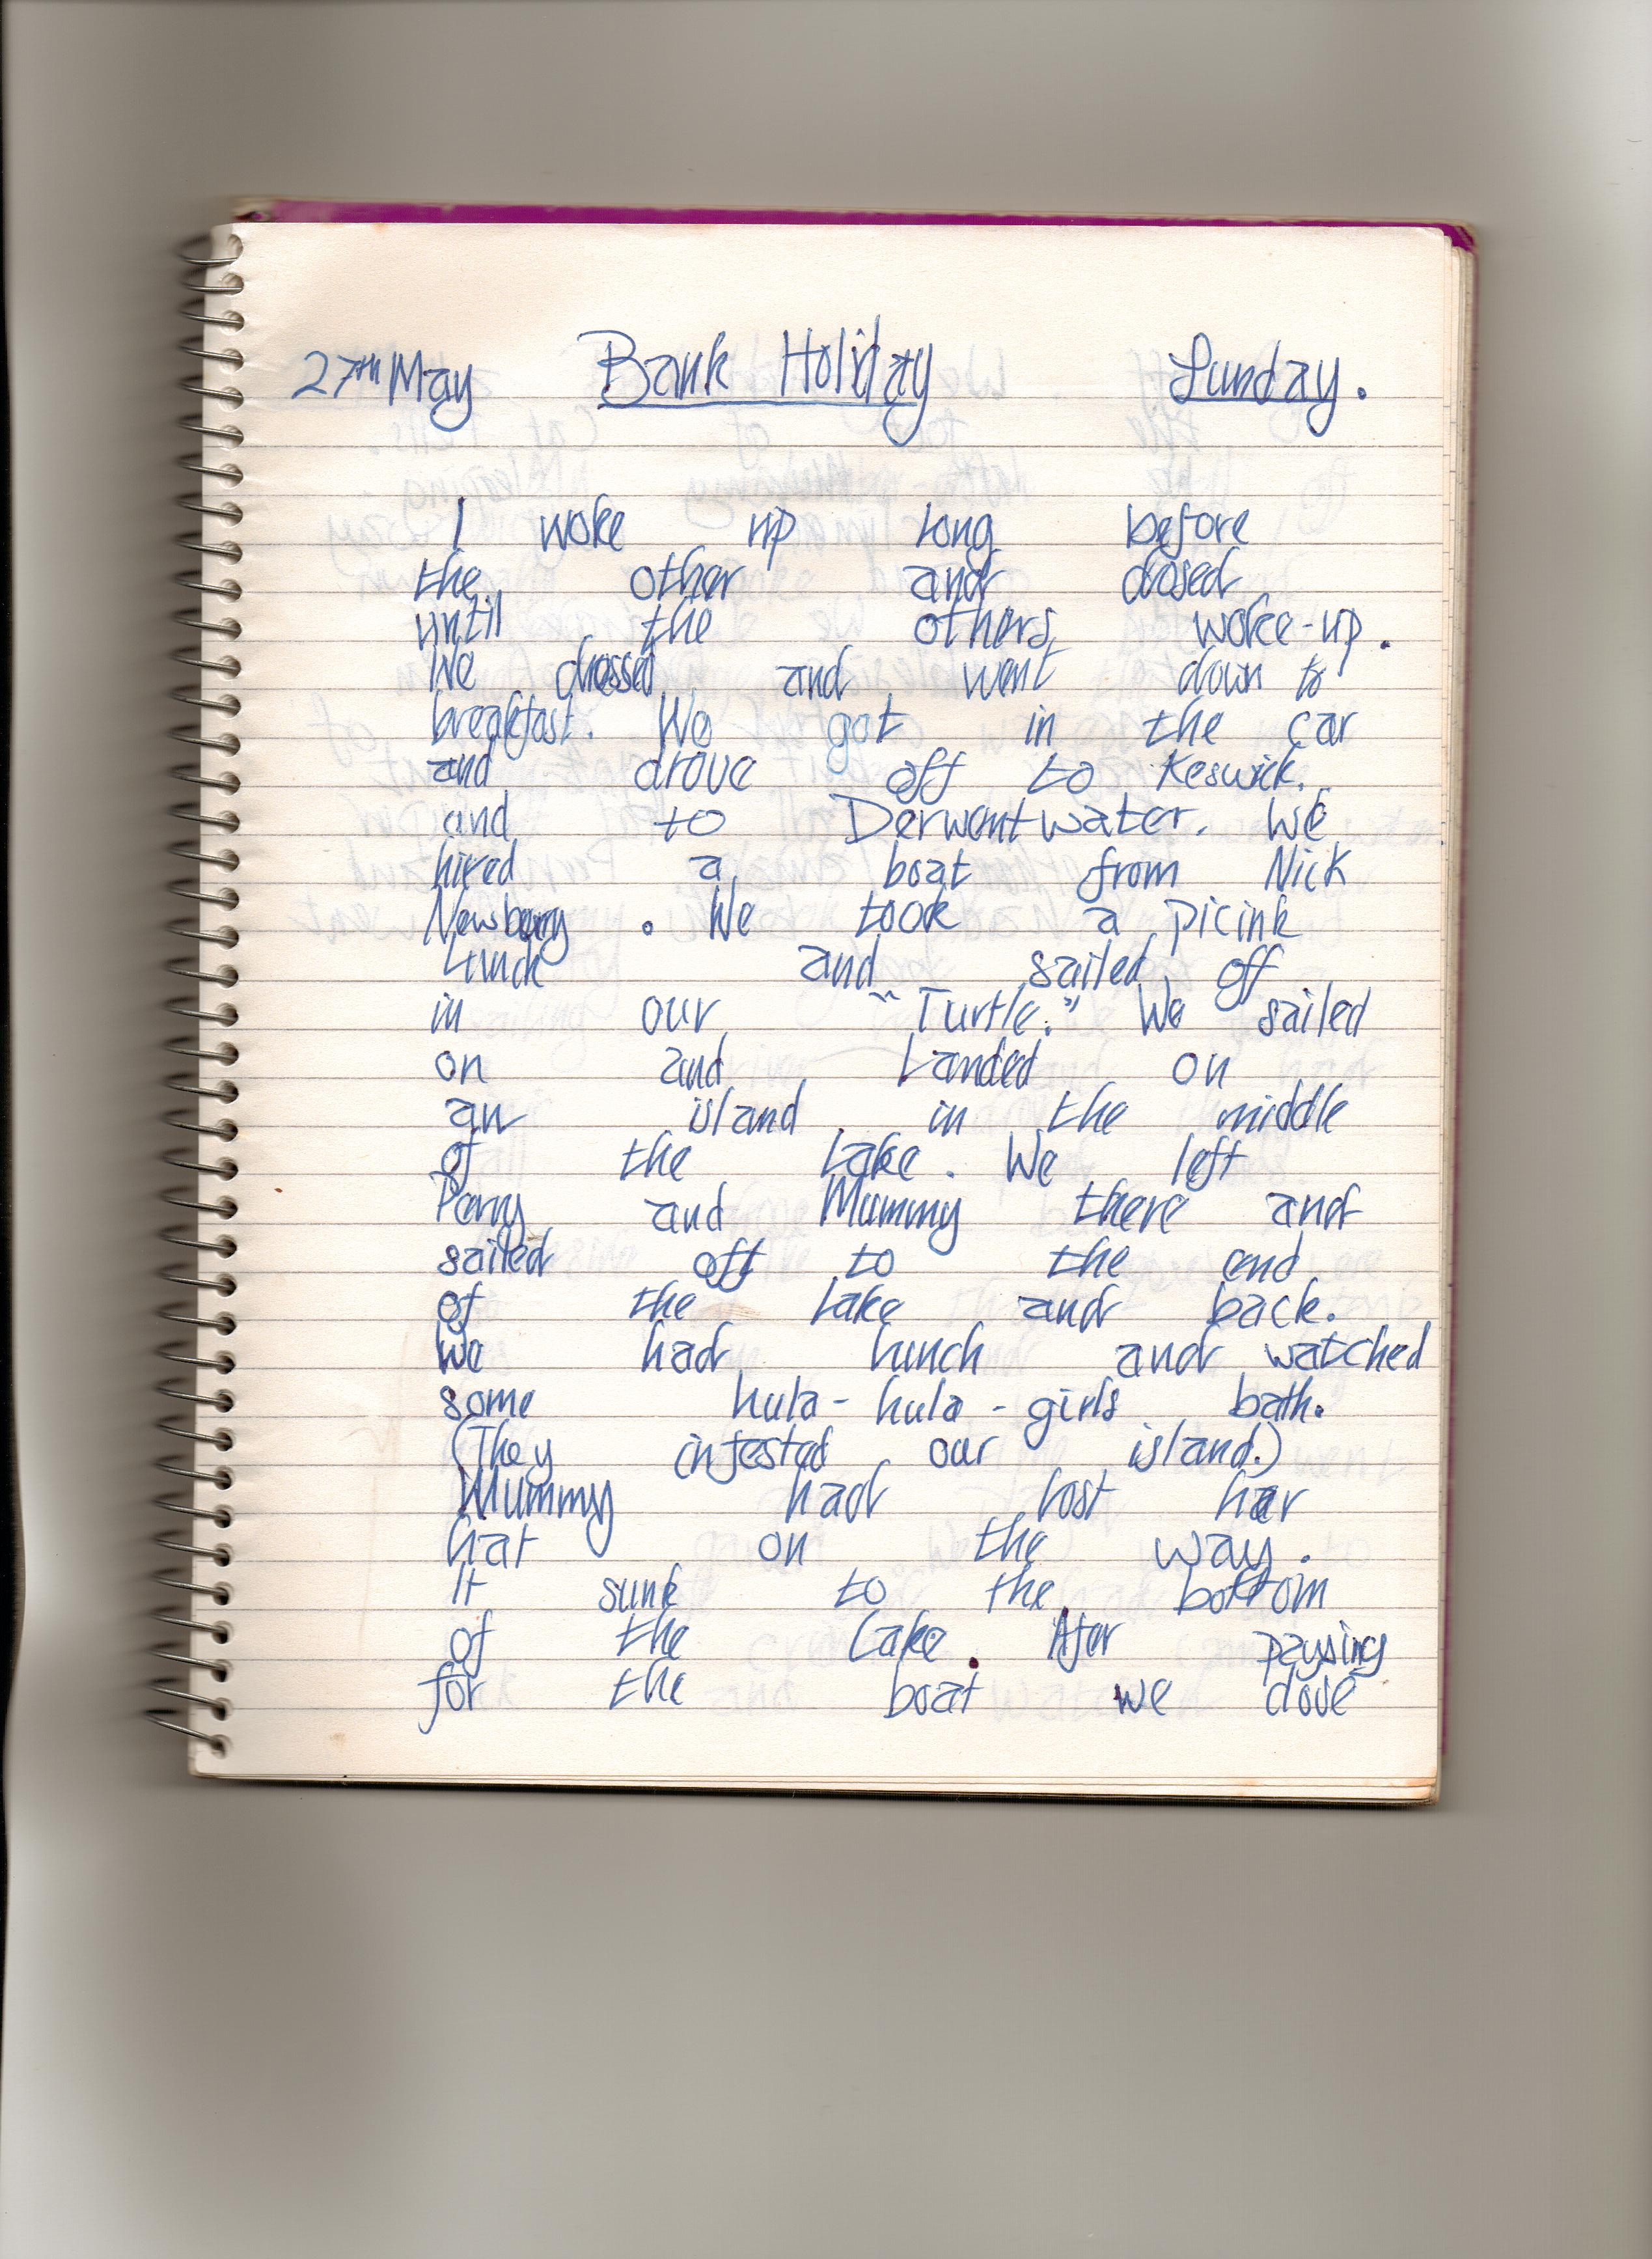 27th May Bank Holiday Sunday.
I woke up long before
the other and dosed
until the others woke-up.
We dressed and went down to
breakfast. We got in the car
and drove off to Keswick.
and to Derwentwater. We
hired a boat from Nick
Newbery. We took a picink
Lunch and sailed off
in our "Turtle." We sailed
on and Landed on
an island in the middle
of the Lake. We left
Perry and Mummy there and
sailed off to the end
of the Lake and back.
We had lunch and watched
some hula-hula-girls bath.
(They infested our island.)
Mummy had lost her
hat on the way.
It sunk to the bottom
of the Lake. Afer paysing
for the boat we dove